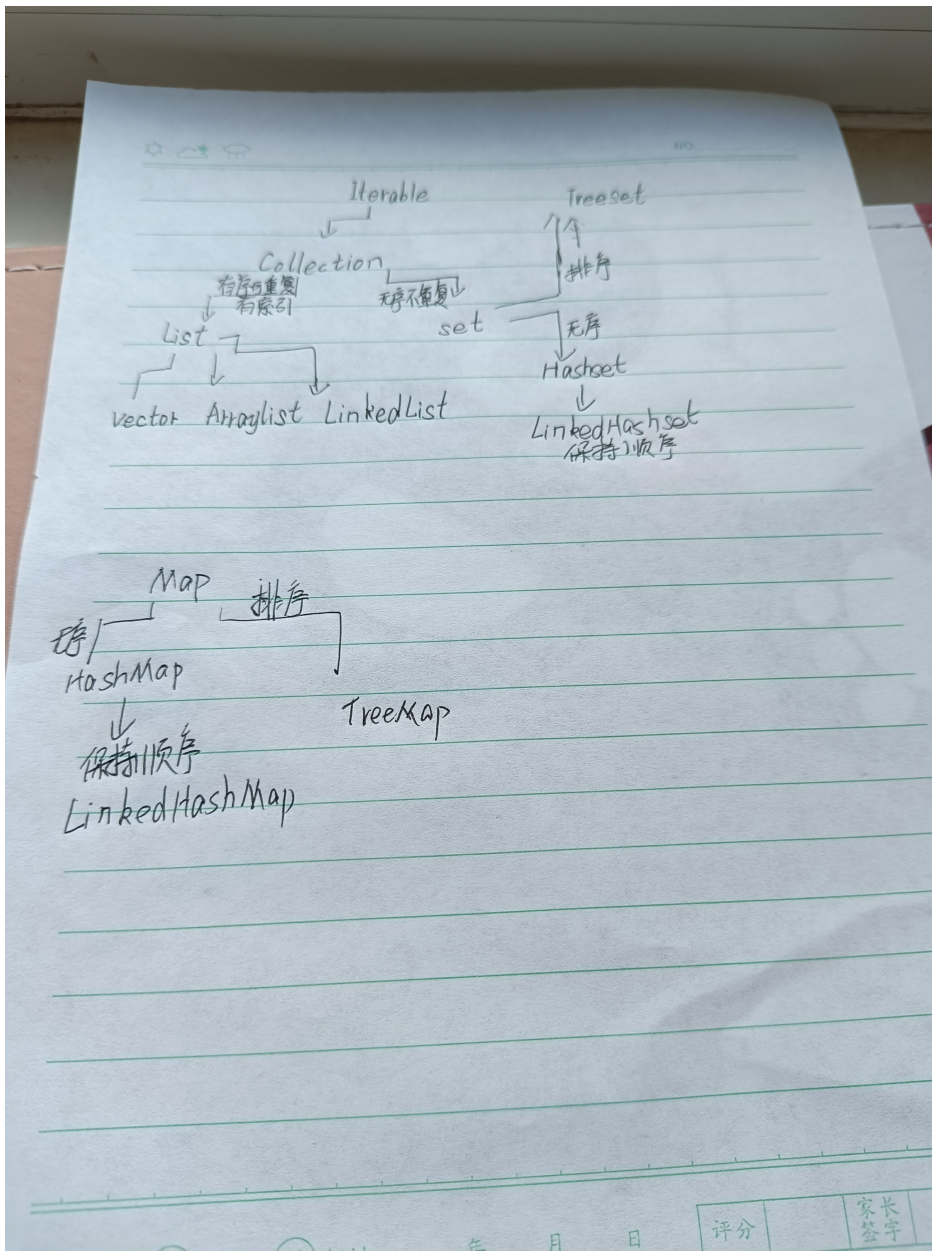 NO
Iterable
Treeset
Collection
排序
有序可重复
有索引
无序不重复
List
set
无序
Hashset
vector Arraylist LinkedList
LinkedHashset
保持顺序
Map
排序
无序
HashMap
TreeMap
保持顺序
LinkedHashMap
年 月 日
评分
家长
签字